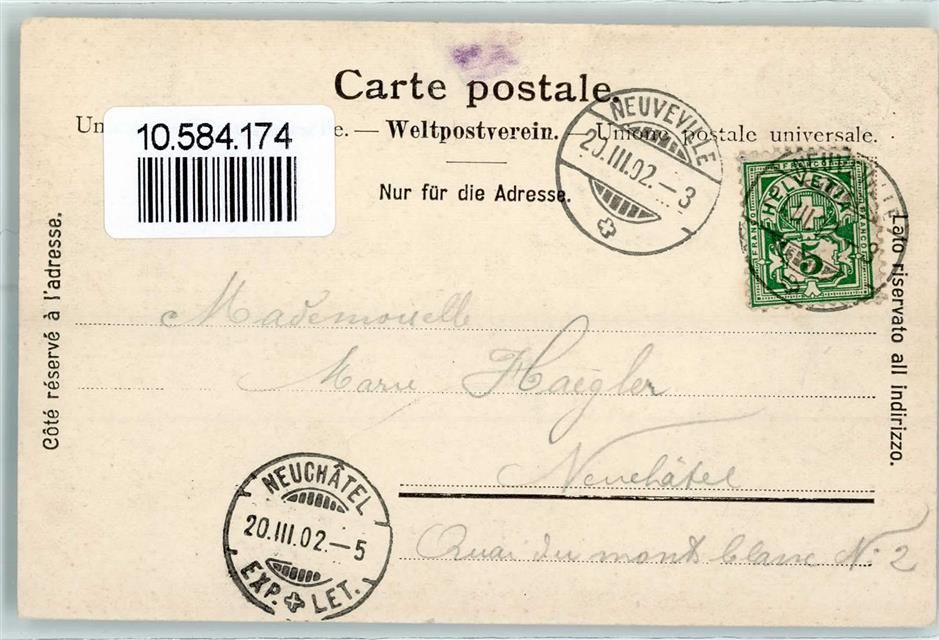 Carte postale.
10.584.174
Un e. — Weltpostverein. — Unione postale universale.
Nur für die Adresse.
NEUVEVILLE
20.III.02.–3
FRANCO
HELVETIA
5
Côté réservé à l'adresse.
Lato riservato all indirizzo.
Mademoiselle
Marie Haegler
Neuchâtel
Quai du mont blanc N: 2
NEUCHÂTEL
20.III.02.–5
EXP. LET.